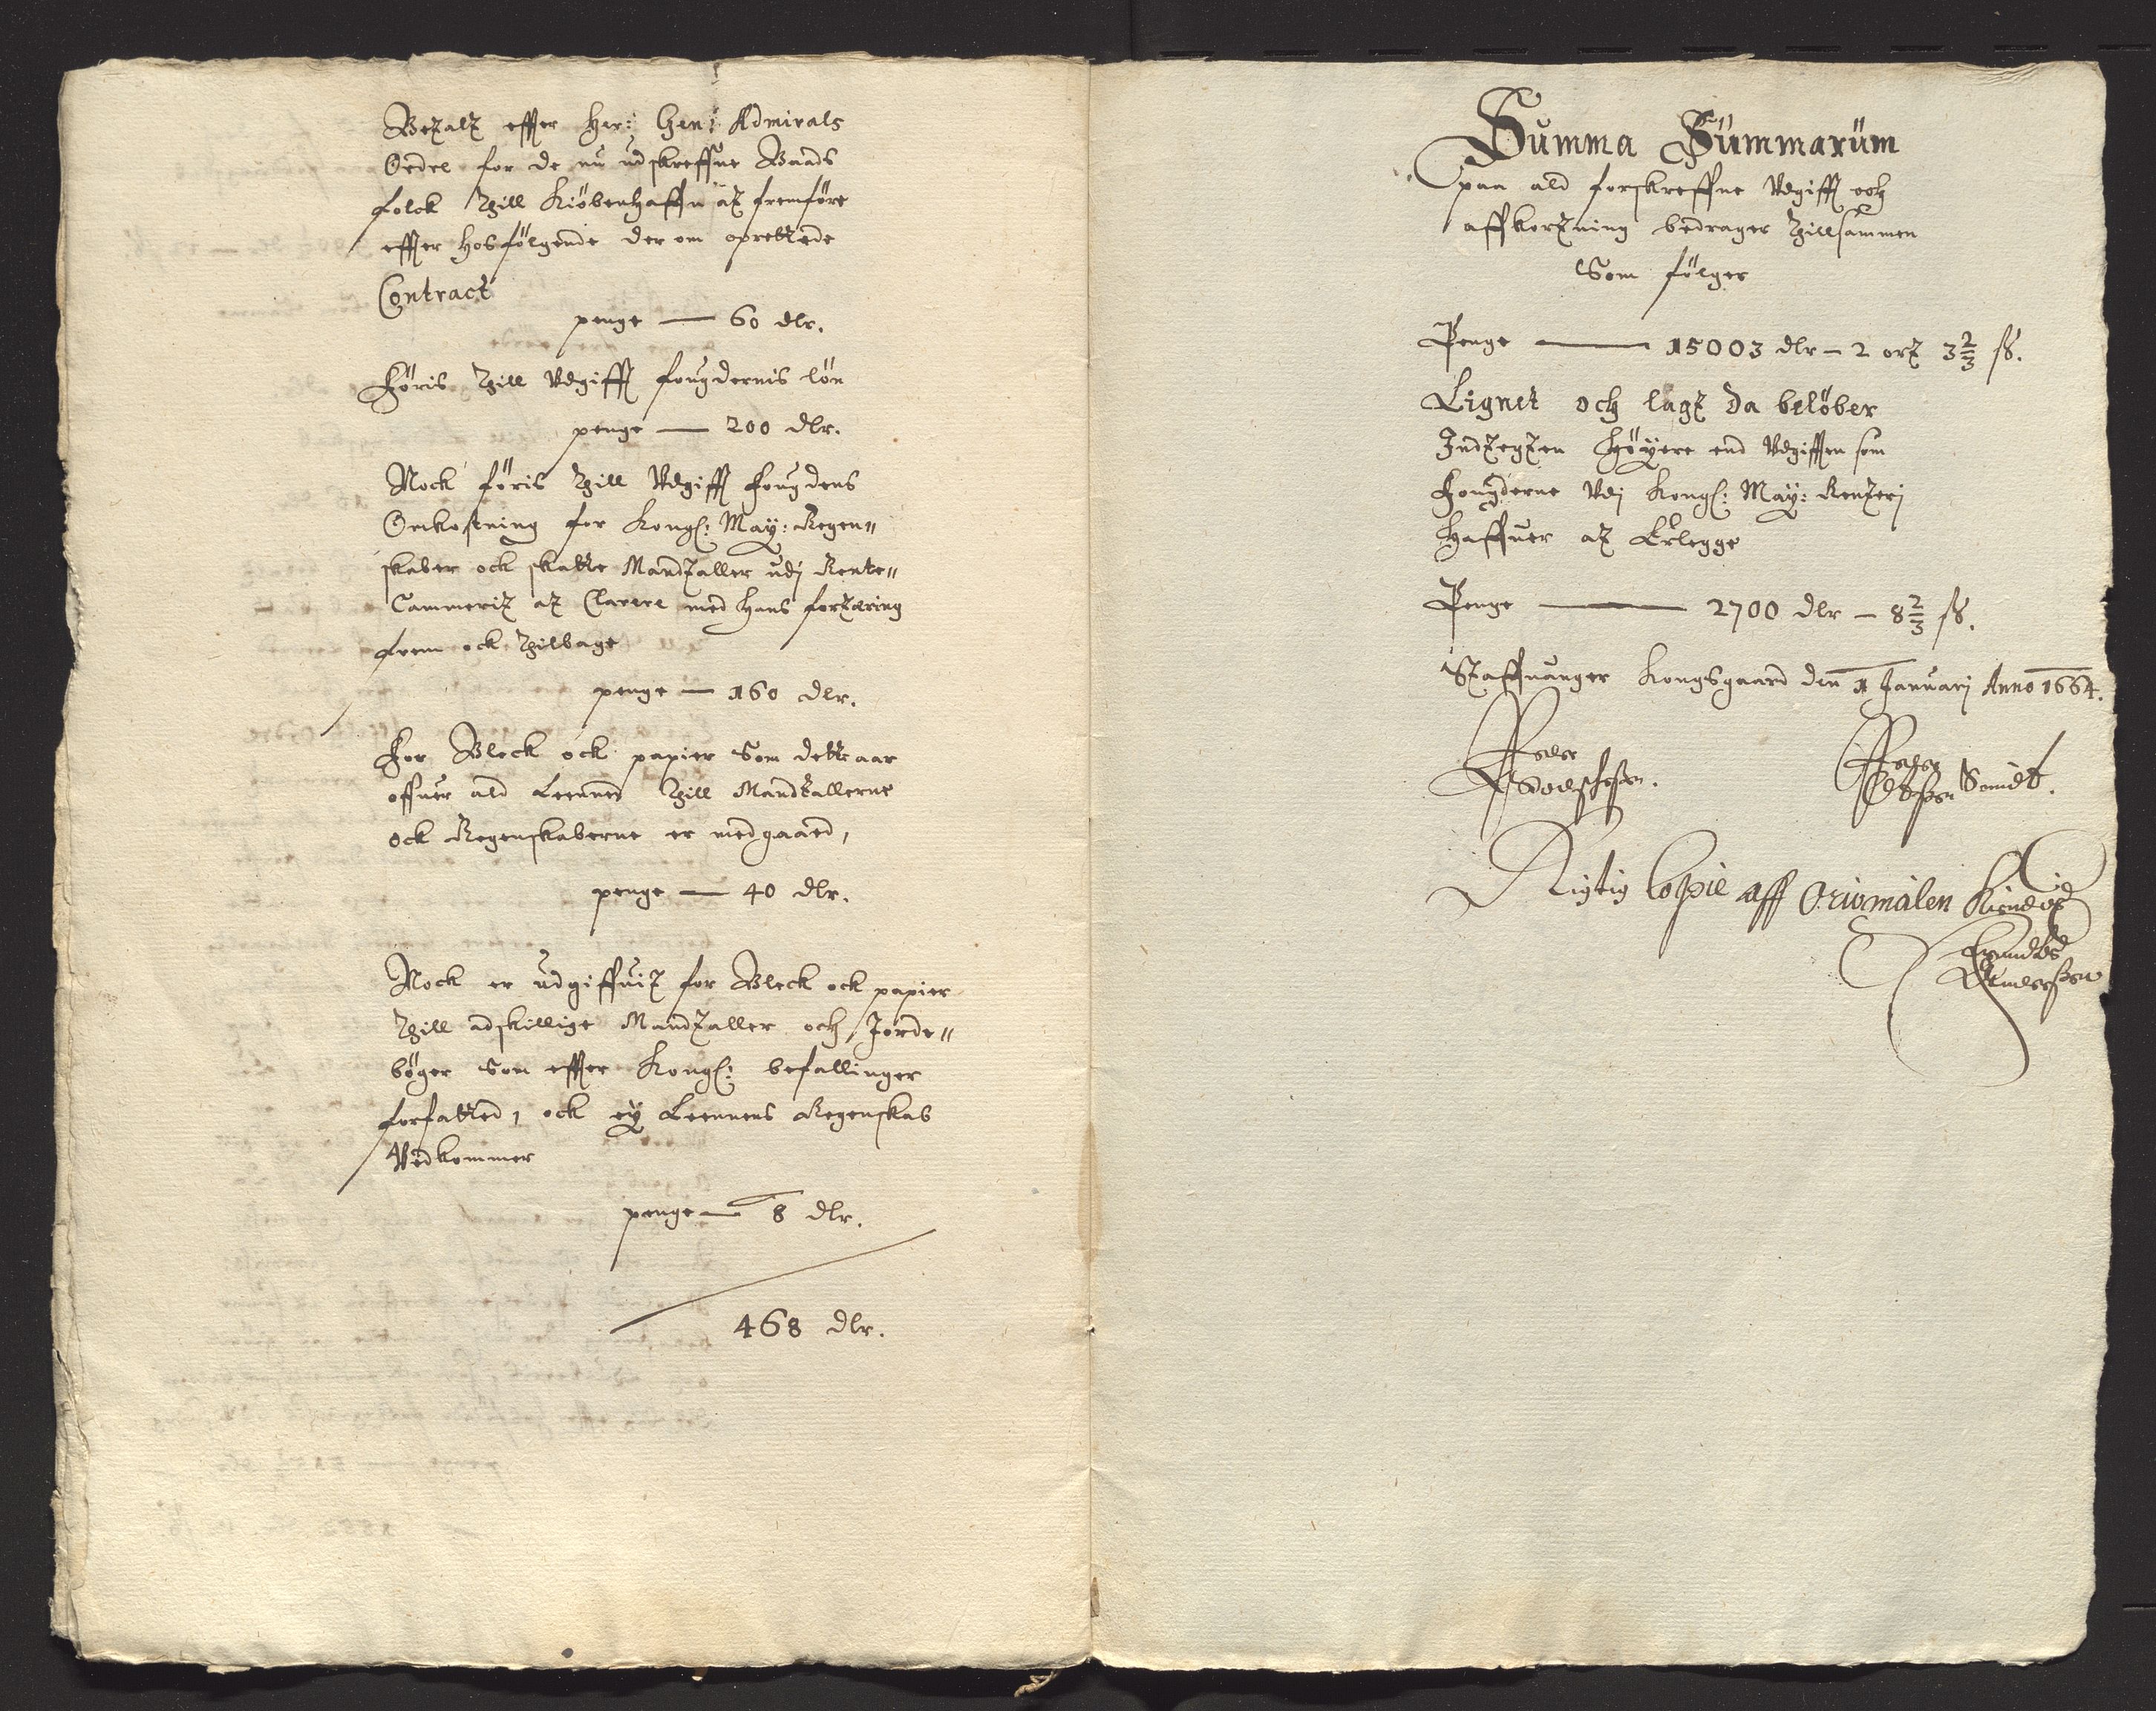 Betalt effter Her: Gen: Admirals
Ordel for de nu udskreffne Baads
folck thill Kiöbenhaffn at fremföre
effter hosfölgende der om oprettede
Contract
penge — 60 dlr.
Föris thill Udgifft fougdernis lön
penge — 200 dlr.
Nock föris thill Udgifft Fougdens
Omkostning for Kongl: May: Regen"
skaber ock skatte Mandtaller udj Rente"
Cammerit at Clarere med hans fortæring
frem ock thilbage
penge — 160 dlr.
For Bleck ock papier Som dette aar
offuer ald Leenned thill Mandtallerne
ock Regenskaberne er medgaaed,
penge — 40 dlr.
Nock er udgiffuit for Bleck ock papier
thill adskillige Mandtaller och Jorde"
böger Som effter Kongl: befallinger
forfatted, ock ey Leennens Regenskab
Vedkommer
penge — 8 dlr.
468 dlr.
Summa Summarum
paa ald forskreffne Udgifft och
affkortning bedrager thillsammen
Som fölger
Penge — 15003 dlr — 2 ort 3 2/3 ß.
Lignet och lagt da belöber
Indtegten Höyere end Udgifften som
Fougderne Udj Kongl: May: Renterj
Haffuer at Erlegge
Penge — 2700 dlr — 8 2/3 ß.
Staffuanger Kongsgaard den 1 Januarj Anno 1664.
Peder
Peder
Smidt.
Rigtig Copie aff Orinalen Kiendes